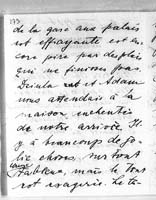 de la gare aux palais
est effrayante est en
core pire par des pluies
qui ne finissent pas.
et Adam
nous attendais à la
maison enchantés
de notre arrivée. Il
y à beaucoup de jo
lie choses, surtout
tableaux, mais le tout
est exagerie. Le té